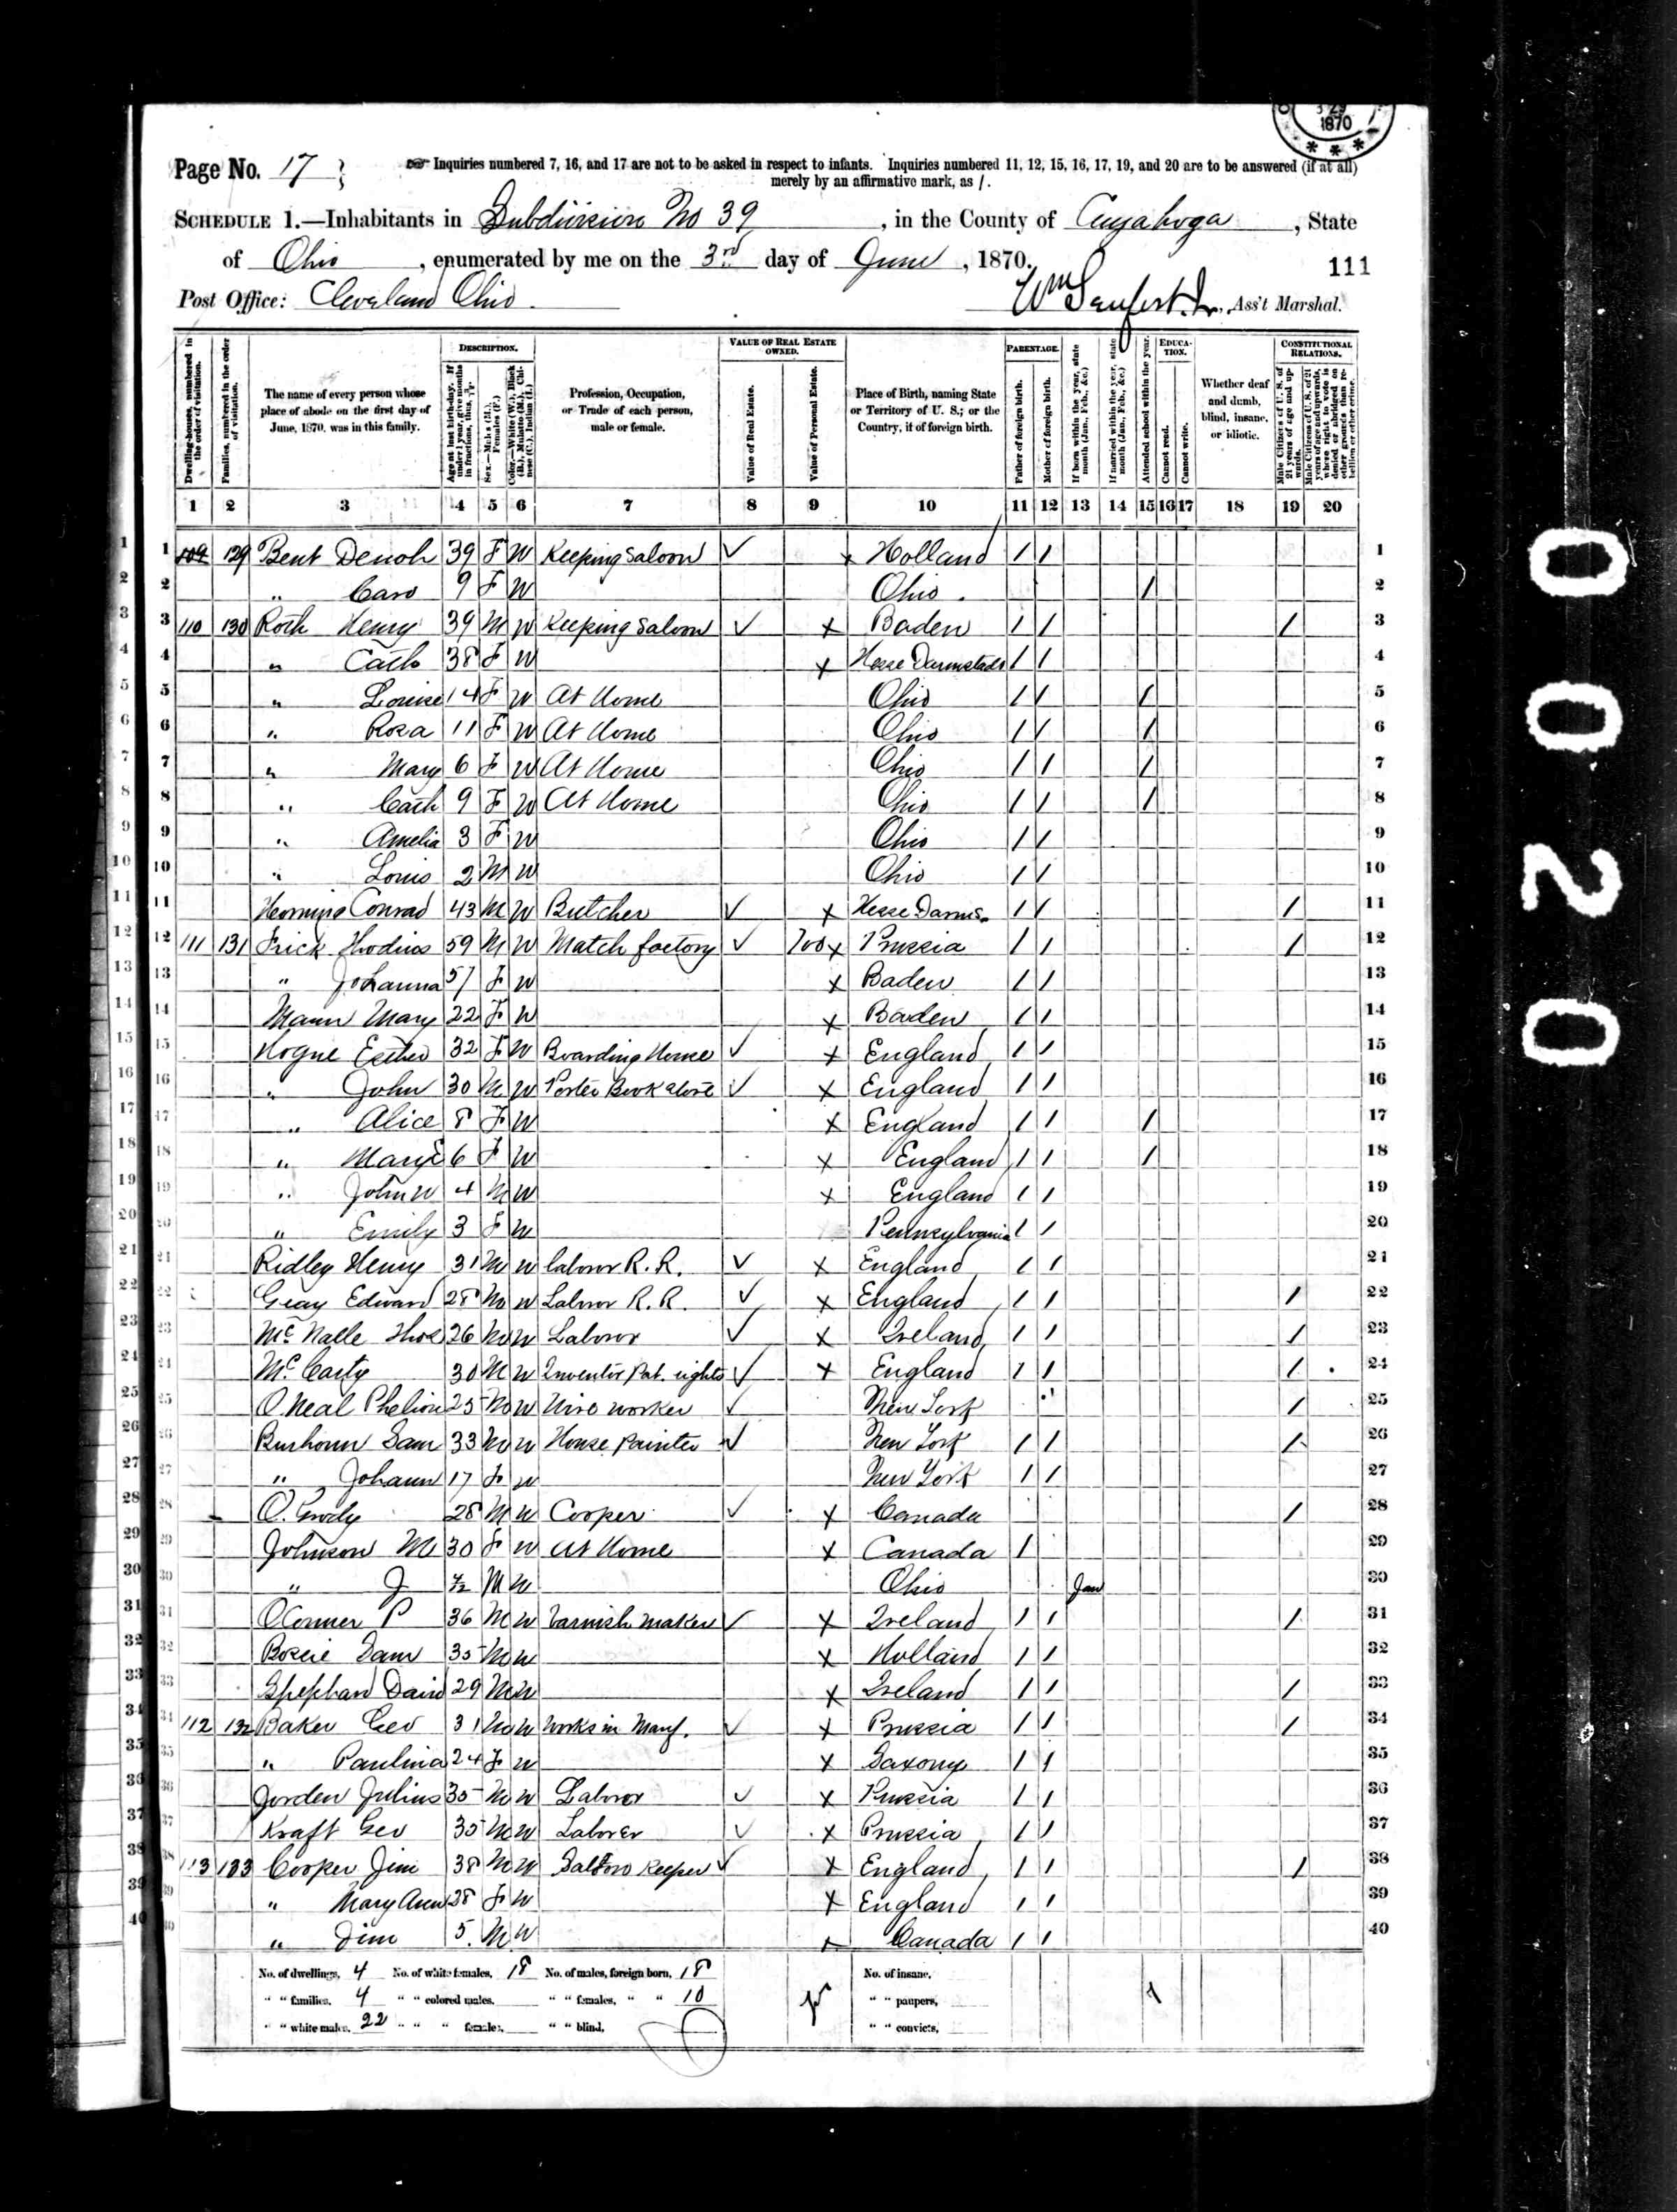 J 29
1870
* * *
Page No. 17
Inquiries numbered 7, 16, and 17 are not to be asked in respect to infants. Inquiries numbered 11, 12, 15, 16, 17, 19, and 20 are to be answered (if at all)
merely by an affirmative mark, as /.
SCHEDULE 1.—Inhabitants in Subdivision No 39, in the County of Cuyahoga, State
of Ohio, enumerated by me on the 3rd day of June, 1870.
111
Post Office: Cleveland Ohio.
Wm Jr., Ass't Marshal.
Dwelling-houses, numbered in the order of visitation.
Families, numbered in the order of visitation.
The name of every person whose place of abode on the first day of June, 1870, was in this family.
DESCRIPTION.
Age at last birth-day. If under 1 year, give months in fractions, thus,
Sex.—Males (M.), Females (F.)
Color.—White (W.), Black (B.), Mulatto (M.), Chinese (C.), Indian (I.)
Profession, Occupation, or Trade of each person, male or female.
VALUE OF REAL ESTATE OWNED.
Value of Real Estate.
Value of Personal Estate.
Place of Birth, naming State or Territory of U. S.; or the Country, if of foreign birth.
PARENTAGE.
Father of foreign birth.
Mother of foreign birth.
If born within the year, state month (Jan., Feb., &c.)
If married within the year, state month (Jan., Feb., &c.)
Attended school within the year.
EDUCATION.
Cannot read.
Cannot write.
Whether deaf and dumb, blind, insane, or idiotic.
CONSTITUTIONAL RELATIONS.
Male Citizens of U. S. of 21 years of age and upwards.
Male Citizens of U. S. of 21 years of age and upwards, where right to vote is denied or abridged on other grounds than rebellion or other crime.
1 2 3 4 5 6 7 8 9 10 11 12 13 14 15 16 17 18 19 20
1 109 129 Bent 39 F W Keeping Saloon ✓ x Holland / / 1
2 " Caro 9 F W Ohio / 2
3 110 130 Roth Henry 39 M W Keeping Saloon ✓ x Baden / / / 3
4 " Cath 38 F W x Hesse Darmstadt / / 4
5 " Louise 14 F W At Home Ohio / / / 5
6 " Rosa 11 F W At Home Ohio / / / 6
7 " Mary 6 F W At Home Ohio / / / 7
8 " Cath 9 F W At Home Ohio / / / 8
9 " Amelia 3 F W Ohio / / 9
10 " Louis 2 M W Ohio / / 10
11 Conrad 43 M W Butcher ✓ x Hesse Darms. / / / 11
12 111 131 Frick 59 M W Match factory ✓ 700 x Prussia / / / 12
13 " Johanna 57 F W x Baden / / 13
14 Mann Mary 22 F W x Baden / / 14
15 Hogue Esther 32 F W Boarding House ✓ x England / / 15
16 " John 30 M W Porter Book Store ✓ x England / / 16
17 " Alice 8 F W x England / / / 17
18 " Mary E 6 F W x England / / / 18
19 " John W 4 M W x England / / 19
20 " Emily 3 F W Pennsylvania / / 20
21 Ridley Henry 31 M W labour R. R. ✓ x England / / 21
22 Gray Edward 28 M W Labour R. R. ✓ x England / / / 22
23 Mc Nalle Thos 26 M W Labour ✓ x Ireland / / / 23
24 Mc Carty 30 M W Inventor Pat. rights ✓ x England / / / 24
25 O Neal 25 M W Wire worker ✓ New York / 25
26 Sam 33 M W House Painter ✓ New York / / / 26
27 " Johann 17 F W New York / / 27
28 O. 28 M W Cooper ✓ x Canada / 28
29 Johnson M 30 F W At Home x Canada / 29
30 " J 1/2 M W Ohio Jan 30
31 OConner P 36 M W Varnish maker ✓ x Ireland / / / 31
32 Sam 35 M W x Holland / / 32
33 29 M W x Ireland / / / 33
34 112 132 Baker Geo 31 M W Works in Manf. ✓ x Prussia / / / 34
35 " Paulina 24 F W x Saxony / / 35
36 Jorden Julius 35 M W Labour ✓ x Prussia / / 36
37 Kraft Geo 35 M W Laborer ✓ x Prussia / / 37
38 113 133 Cooper Jim 38 M W Saloon Keeper ✓ x England / / / 38
39 " Mary Ann 28 F W x England / / 39
40 " Jim 5 M W x Canada / / 40
No. of dwellings, 4 No. of white females, 18 No. of males, foreign born, 18 No. of insane,
" " families, 4 " " colored males, " " females, " " 10 " " paupers,
" " white males, 22 " " " females, " " blind, " " convicts,
0200